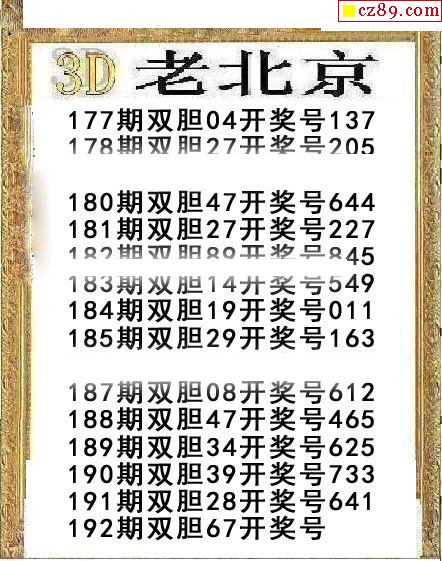 cz89.com
3D 老北京
177期双胆04开奖号137
178期双胆27开奖号205
180期双胆47开奖号644
181期双胆27开奖号227
182期双胆89开奖号845
183期双胆14开奖号549
184期双胆19开奖号011
185期双胆29开奖号163
187期双胆08开奖号612
188期双胆47开奖号465
189期双胆34开奖号625
190期双胆39开奖号733
191期双胆28开奖号641
192期双胆67开奖号